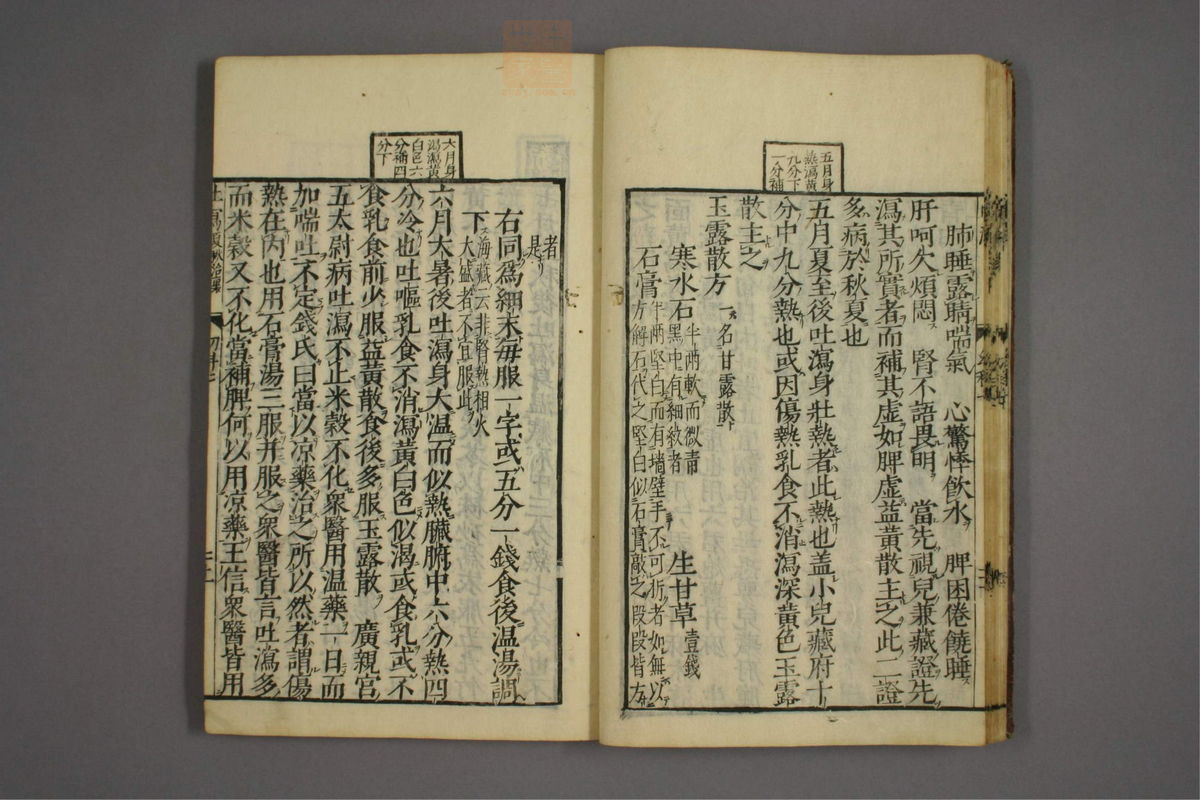 五月身
熱瀉黃
九分下
一分補
肺睡露睛喘氣　心驚悸飲水　脾困倦饒睡
肝呵欠煩悶　腎不語畏明　當先視兒兼藏證先
瀉其所實者而補其虛如脾虛益黃散主之此二證
多病於秋夏也
五月夏至後吐瀉身壯熱者此熱也盖小兒藏府十
分中九分熱也或因傷熱乳食不消瀉深黃色玉露
散主之
玉露散方　一名甘露散
寒水石　半兩軟而微青
黑中有細紋者　生甘草　壹錢
石膏　半兩堅白而有墻壁手不可折者如無以
方解石代之堅白似石膏敲之段段皆方
六月身
瀉瀉黃
白色六
分補四
分下
者
是
右同爲細末每服一字或五分一錢食後温湯調
下　海藏云非腎熱相火
大盛者不宜服此
六月大暑後吐瀉身大温而似熱臟腑中六分熱四
分冷也吐嘔乳食不消瀉黃白色似渴或食乳或不
食乳食前少服益黃散食後多服玉露散　廣親宫
五太尉病吐瀉不止米穀不化衆醫用温藥一日而
加喘吐不定錢氏曰當以凉藥治之所以然者謂傷
熱在内也用石膏湯三服并服之衆醫皆言吐瀉多
而米穀又不化當補脾何以用凉藥王信衆醫皆用